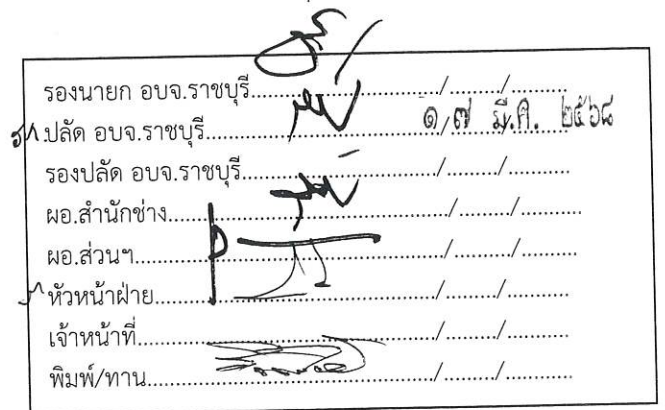 รองนายก อบจ.ราชบุรี................................/........./..........
ปลัด อบจ.ราชบุรี................................ ๑ ๗ มี.ค. ๒๕๖๘
รองปลัด อบจ.ราชบุรี................................/........./..........
ผอ.สำนักช่าง................................/........./..........
ผอ.ส่วนฯ................................/........./..........
หัวหน้าฝ่าย................................/........./..........
เจ้าหน้าที่................................/........./..........
พิมพ์/ทาน................................/........./..........